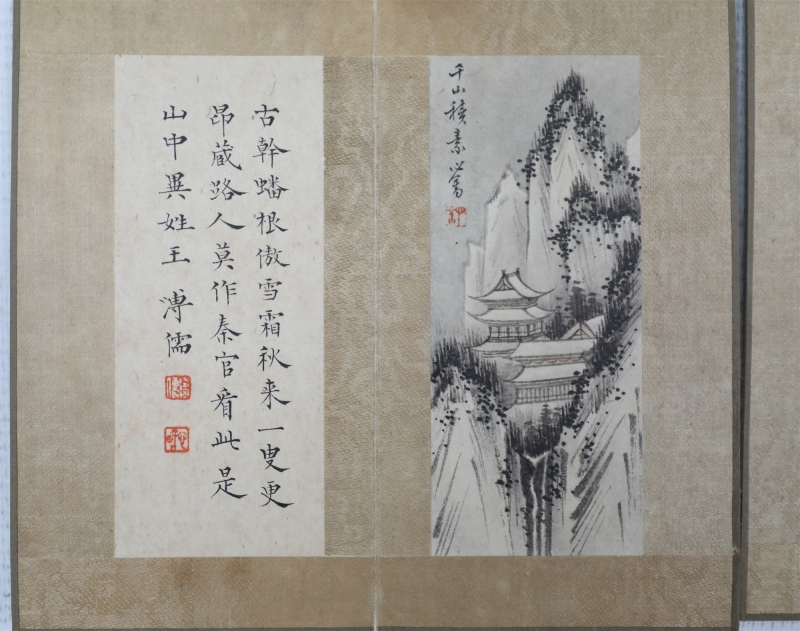 千山積素 心畬
古幹蟠根傲雪霜秋來一叟更
昂藏路人莫作秦官看此是
山中異姓王 溥儒